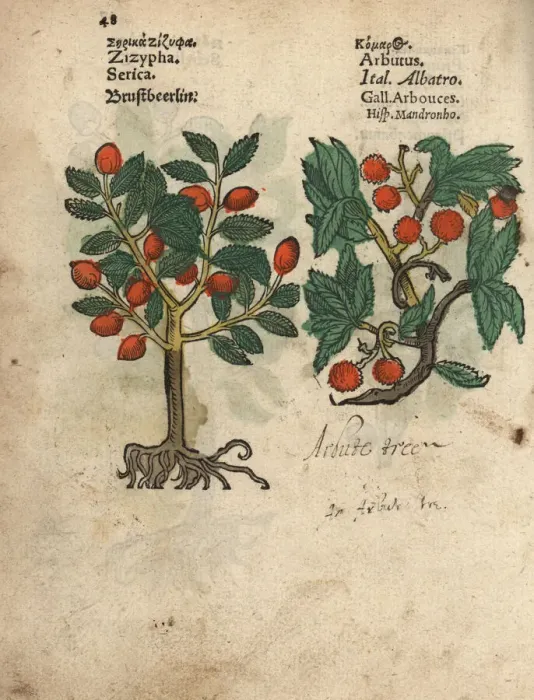 48
Συρικὰ Ζίζυφα.
Zizypha.
Serica.
Bruſtbeerlin.
Κόμαρος.
Arbutus.
Ital. Albatro.
Gall. Arbouces.
Hiſp. Mandronho.
Arbute tree